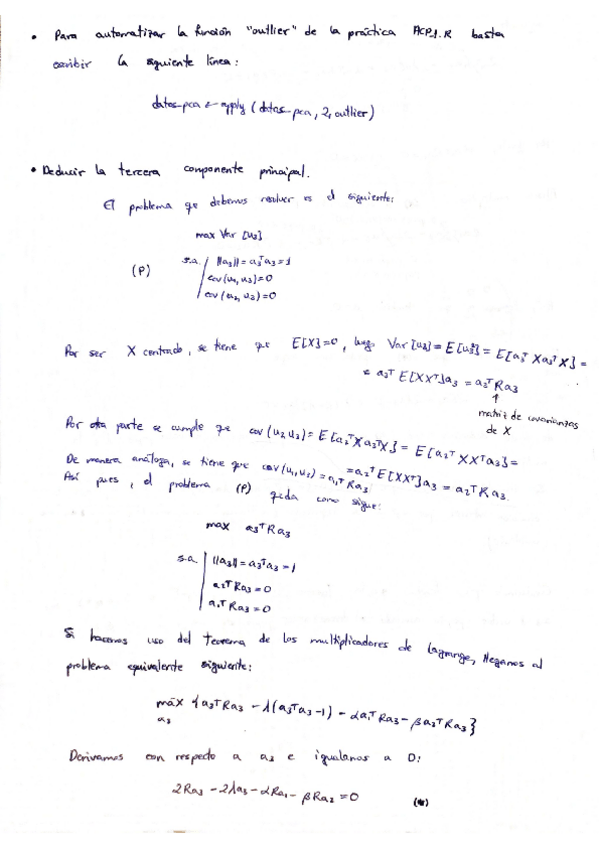 • Para automatizar la función "outlier" de la práctica ACP1.R basta
escribir la siguiente línea:
datos_pca ← apply (datos_pca, 2, outlier)
• Deducir la tercera componente principal.
El problema que debemos resolver es el siguiente:
max Var [u3]
(P) s.a. ||a3|| = a3ᵀa3 = 1
cov(u1, u3) = 0
cov(u2, u3) = 0
Por ser X centrado, se tiene que E[X]=0, luego Var[u3] = E[u3²] = E[a3ᵀXa3ᵀX] =
= a3ᵀ E[XXᵀ]a3 = a3ᵀRa3
↑
matriz de covarianzas
de X
Por otra parte se cumple que cov(u2,u3) = E[a2ᵀXa3ᵀX] = E[a2ᵀXXᵀa3] =
= a2ᵀE[XXᵀ]a3 = a2ᵀRa3.
De manera análoga, se tiene que cov(u1,u3) = a1ᵀRa3
Así pues, el problema (P) queda como sigue:
max a3ᵀRa3
s.a. ||a3|| = a3ᵀa3 = 1
a2ᵀRa3 = 0
a1ᵀRa3 = 0
Si hacemos uso del teorema de los multiplicadores de Lagrange, llegamos al
problema equivalente siguiente:
máx {a3ᵀRa3 - λ(a3ᵀa3-1) - αa1ᵀRa3 - βa2ᵀRa3}
a3
Derivamos con respecto a a3 e igualamos a 0:
2Ra3 - 2λa3 - αRa1 - βRa2 = 0 (*)